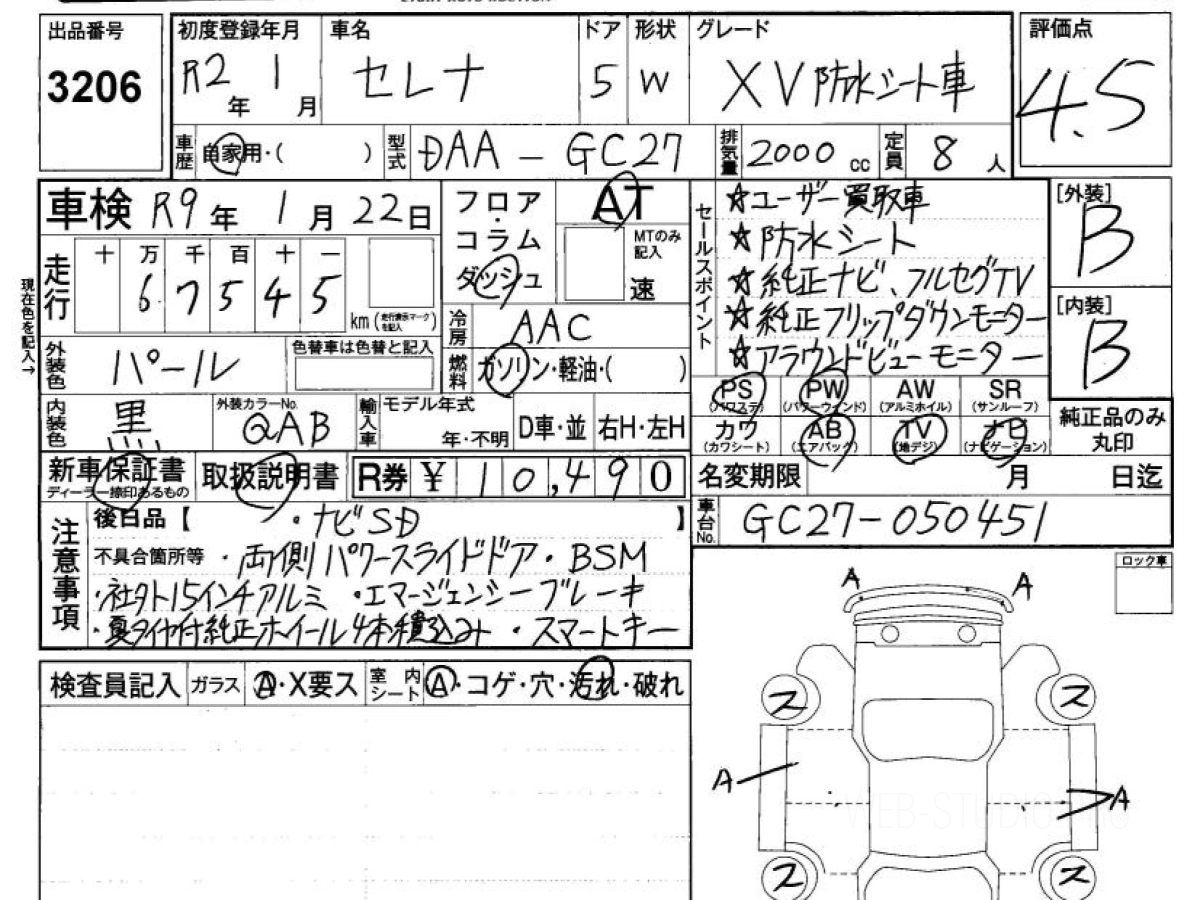 出品番号 初度登録年月 車名 ドア 形状 グレード 評価点
3206 R2年 1月 セレナ 5 W XV防水シート車 4.5
車歴 自家用・( ) 型式 DAA-GC27 排気量 2000 cc 定員 8人
車検 R9年 1月 22日
フロア・コラム ダッシュ
AT
MTのみ記入
速
走行 十 万 千 百 十 一
6 7 5 4 5 km (走行表示マークを記入)
現在色を記入→
冷房 AAC
外装色 パール 色替車は色替と記入
燃料 ガソリン・軽油・( )
内装色 黒 外装カラーNo. QAB 輸入車 モデル年式 年・不明 D車・並 右H・左H
新車保証書 ディーラー捺印あるもの 取扱説明書 R券 ¥ 10,490
セールスポイント
☆ユーザー買取車
☆防水シート
☆純正ナビ、フルセグTV
☆純正フリップダウンモニター
☆アラウンドビューモニター
[外装]
B
[内装]
B
PS (パワステ) PW (パワーウインド) AW (アルミホイル) SR (サンルーフ)
カワ (カワシート) AB (エアバッグ) TV (地デジ) ナビ (ナビゲーション)
純正品のみ丸印
名変期限 月 日迄
車台No. GC27-050451
注意事項
後日品【 ・ナビSD 】
不具合箇所等 ・両側パワースライドドア・BSM
・社外15インチアルミ ・エマージェンシーブレーキ
・夏タイヤ付純正ホイール4本積込み ・スマートキー
検査員記入 ガラス A・X要ス 室内シート A・コゲ・穴・汚れ・破れ
ロック車
A A
ス ス
A A
ス ス
WEB-STUDIO